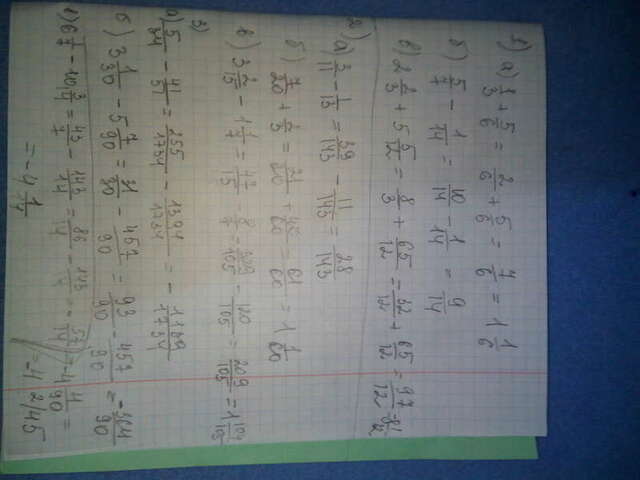 1) а) 1/3 + 5/6 = 2/6 + 5/6 = 7/6 = 1 1/6
б) 5/7 - 1/14 = 10/14 - 1/14 = 9/14
в) 2 2/3 + 5 5/12 = 8/3 + 65/12 = 32/12 + 65/12 = 97/12 = 8 1/12
2) а) 3/11 - 1/13 = 39/143 - 11/143 = 28/143
б) 7/20 + 2/3 = 21/60 + 40/60 = 61/60 = 1 1/60
в) 3 2/15 - 1 1/7 = 47/15 - 8/7 = 329/105 - 120/105 = 209/105 = 1 104/105
3)
а) 5/34 - 41/51 = 255/1734 - 1394/1734 = - 1139/1734
б) 3 1/30 - 5 7/90 = 91/30 - 457/90 = 93/90 - 457/90 = - 364/90
= -4 4/90 = -4 2/45
в) 6 1/7 - 10 3/14 = 43/7 - 143/14 = 86/14 - 143/14 = - 57/14
= -4 1/14